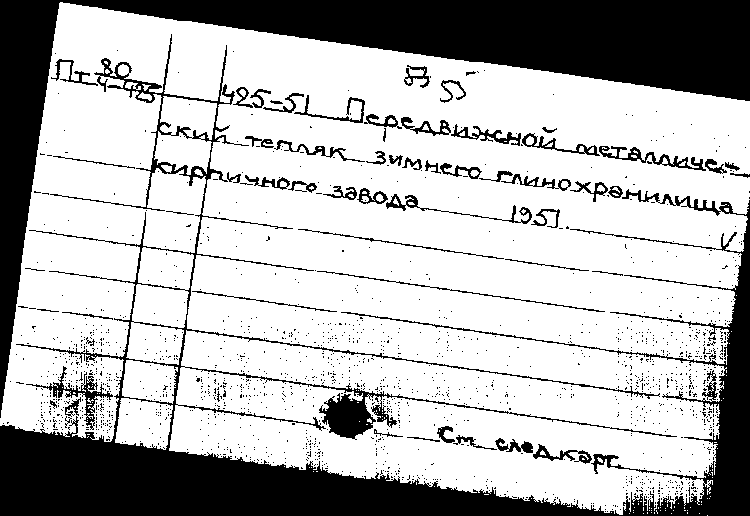 55
Пт 80/4-425
425-51 Передвижной металличе-
ский тепляк зимнего глинохранилища
кирпичного завода 1951.
См. след. карт.